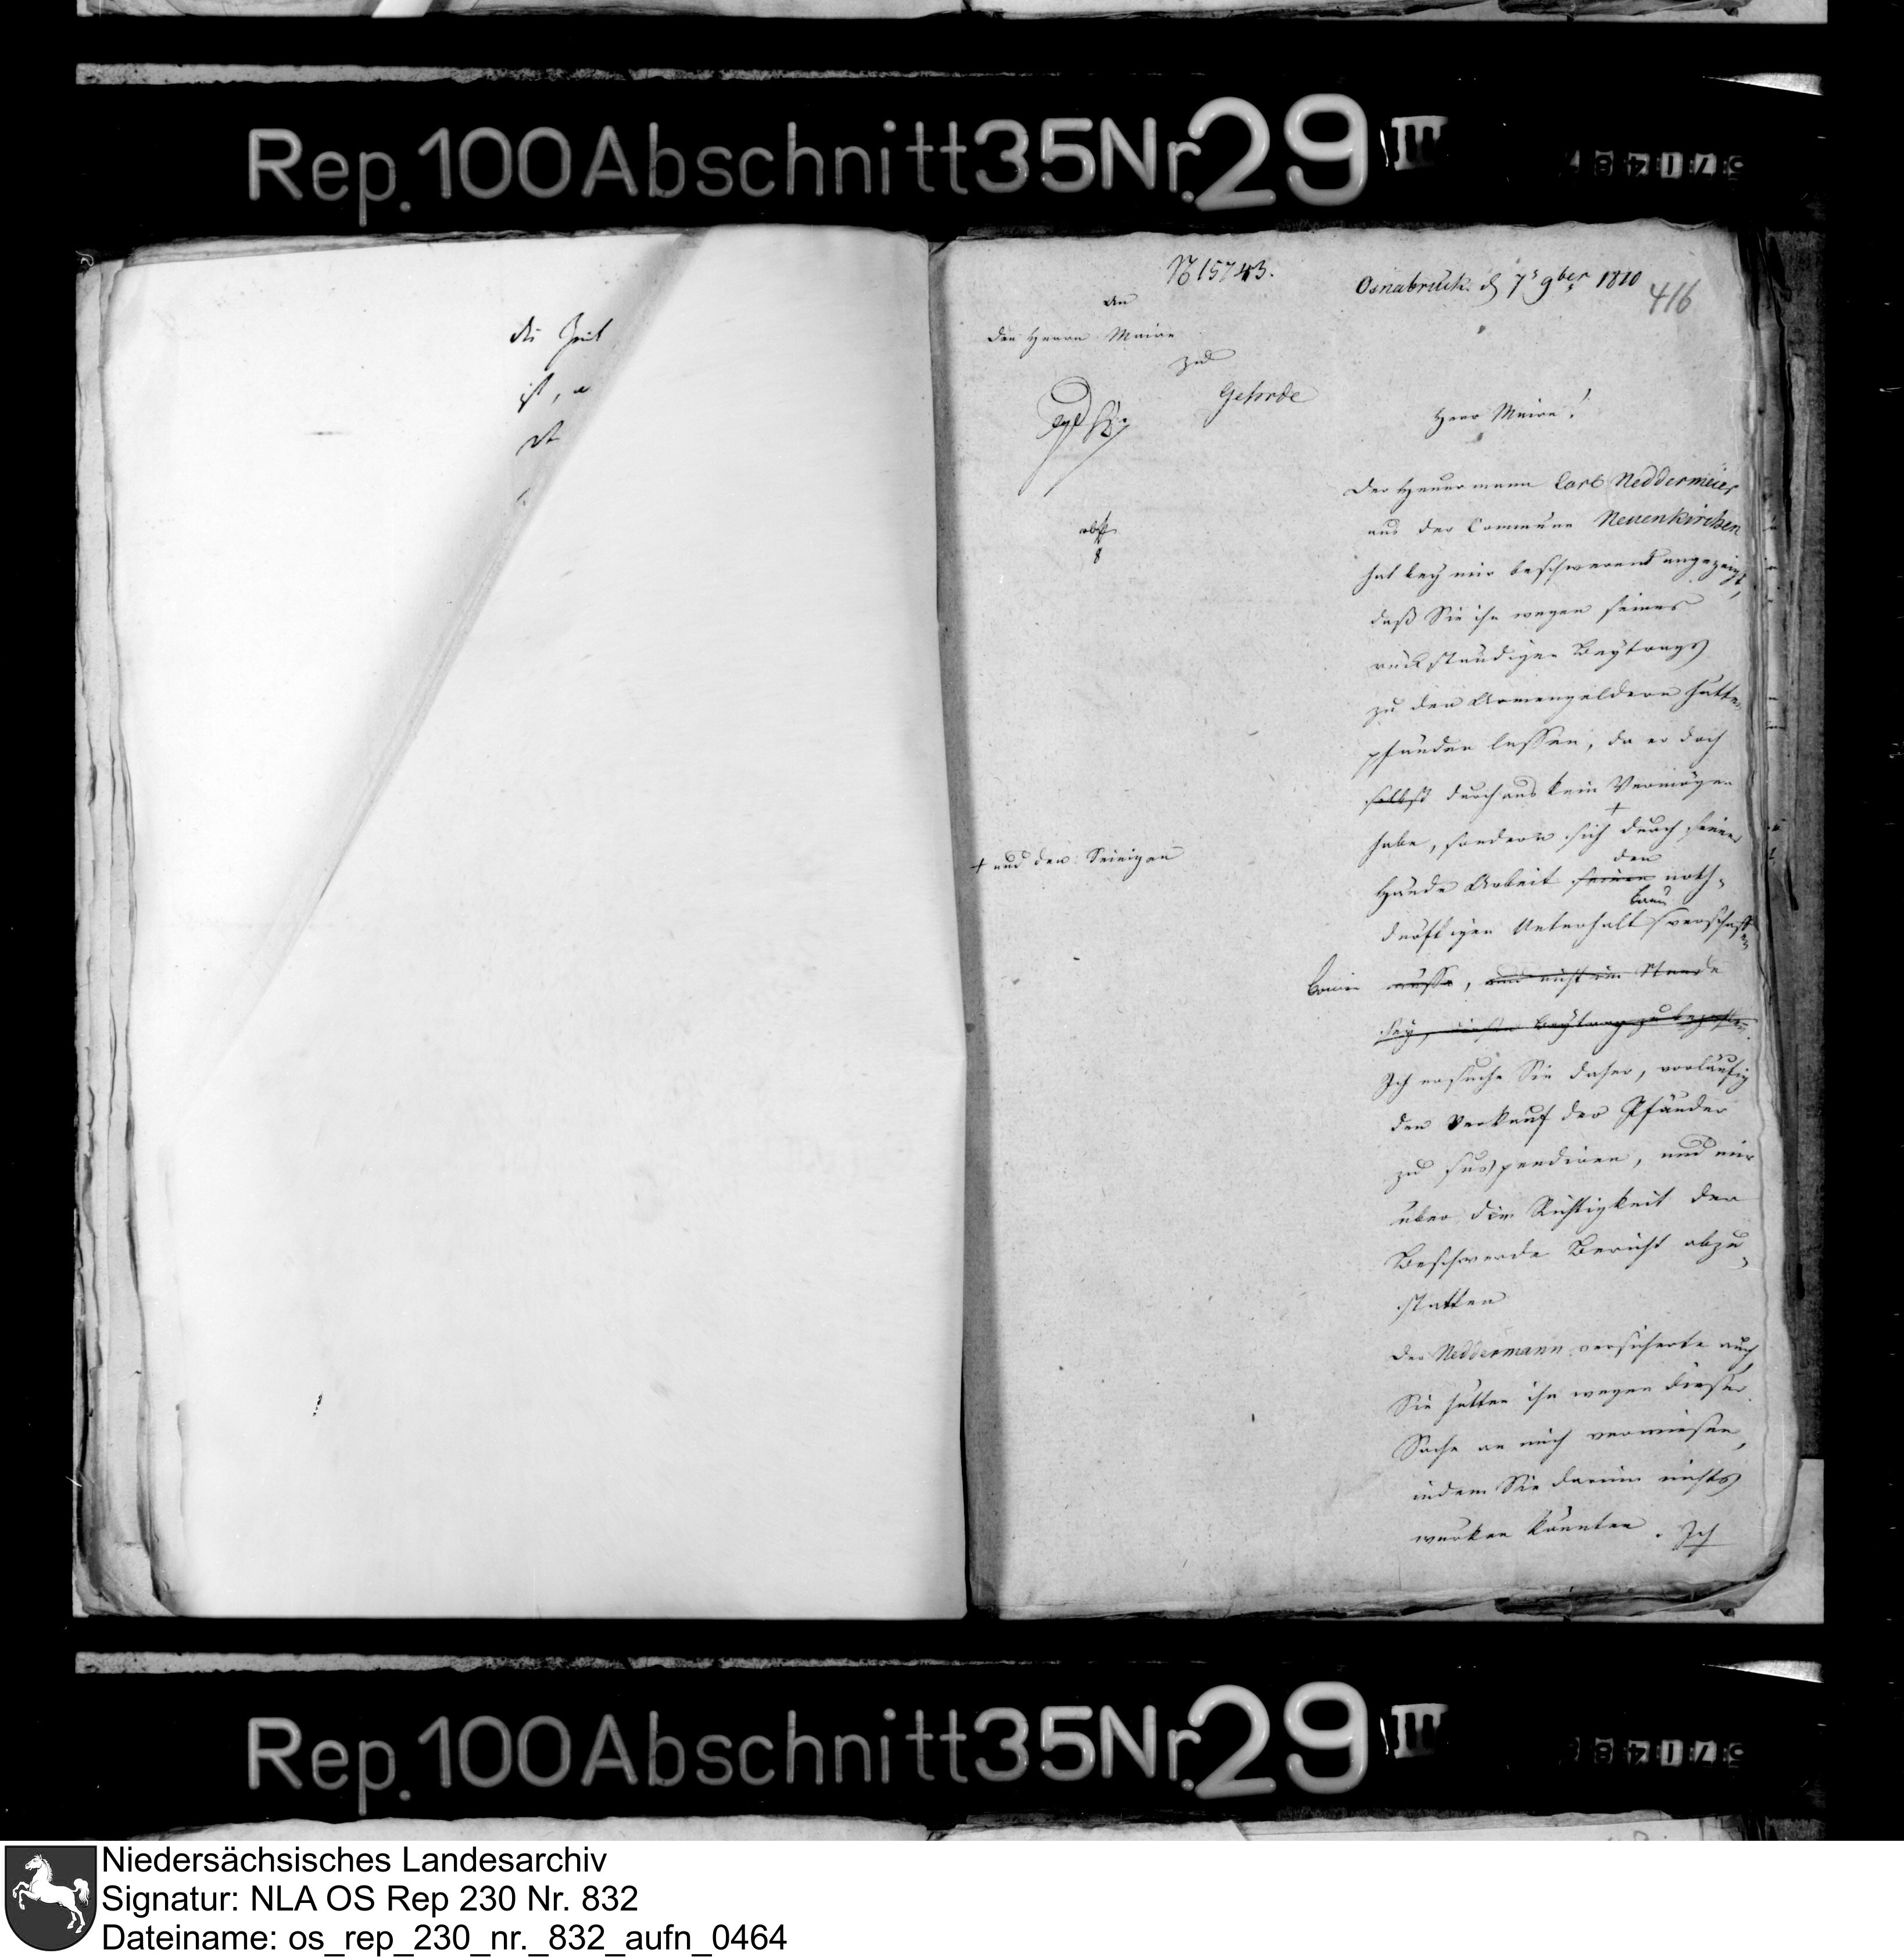 Rep. 100 Abschnitt 35 Nr. 29 III
die Zeit
ist, a
N 15743.
Osnabrück. d 7t 9ber 1810
416
An
den Herrn Maire
zu
Gehrde
Herr Maire!
Der Heuermann Cord Neddermeier
aus der Commune Neuenkirchen
hat bey mir beschwerend angezeigt,
daß Sie ihn wegen seines
rückständigen Beytrags
zu den Armengeldern hätten
pfänden lassen, da er doch
selbst durchaus kein Vermögen
habe, sondern sich + durch seiner
+ und den Seinigen
Hände Arbeit seinen den noth-
dürftigen Unterhalt verschaffen
müsse, und nicht im Stande
sey, diesen Beytrag zu bezahlen.
Ich ersuche Sie daher, vorläufig
den Verkauf der Pfänder
zu suspendiren, und mir
über die Richtigkeit der
Beschwerde Bericht abzu-
statten
Der Neddermann versicherte auch
Sie hätten ihn wegen dieser
Sache an mich verwiesen,
indem Sie darin nichts
würken könnten. Ich
Rep. 100 Abschnitt 35 Nr. 29 III
Niedersächsisches Landesarchiv
Signatur: NLA OS Rep 230 Nr. 832
Dateiname: os_rep_230_nr._832_aufn_0464